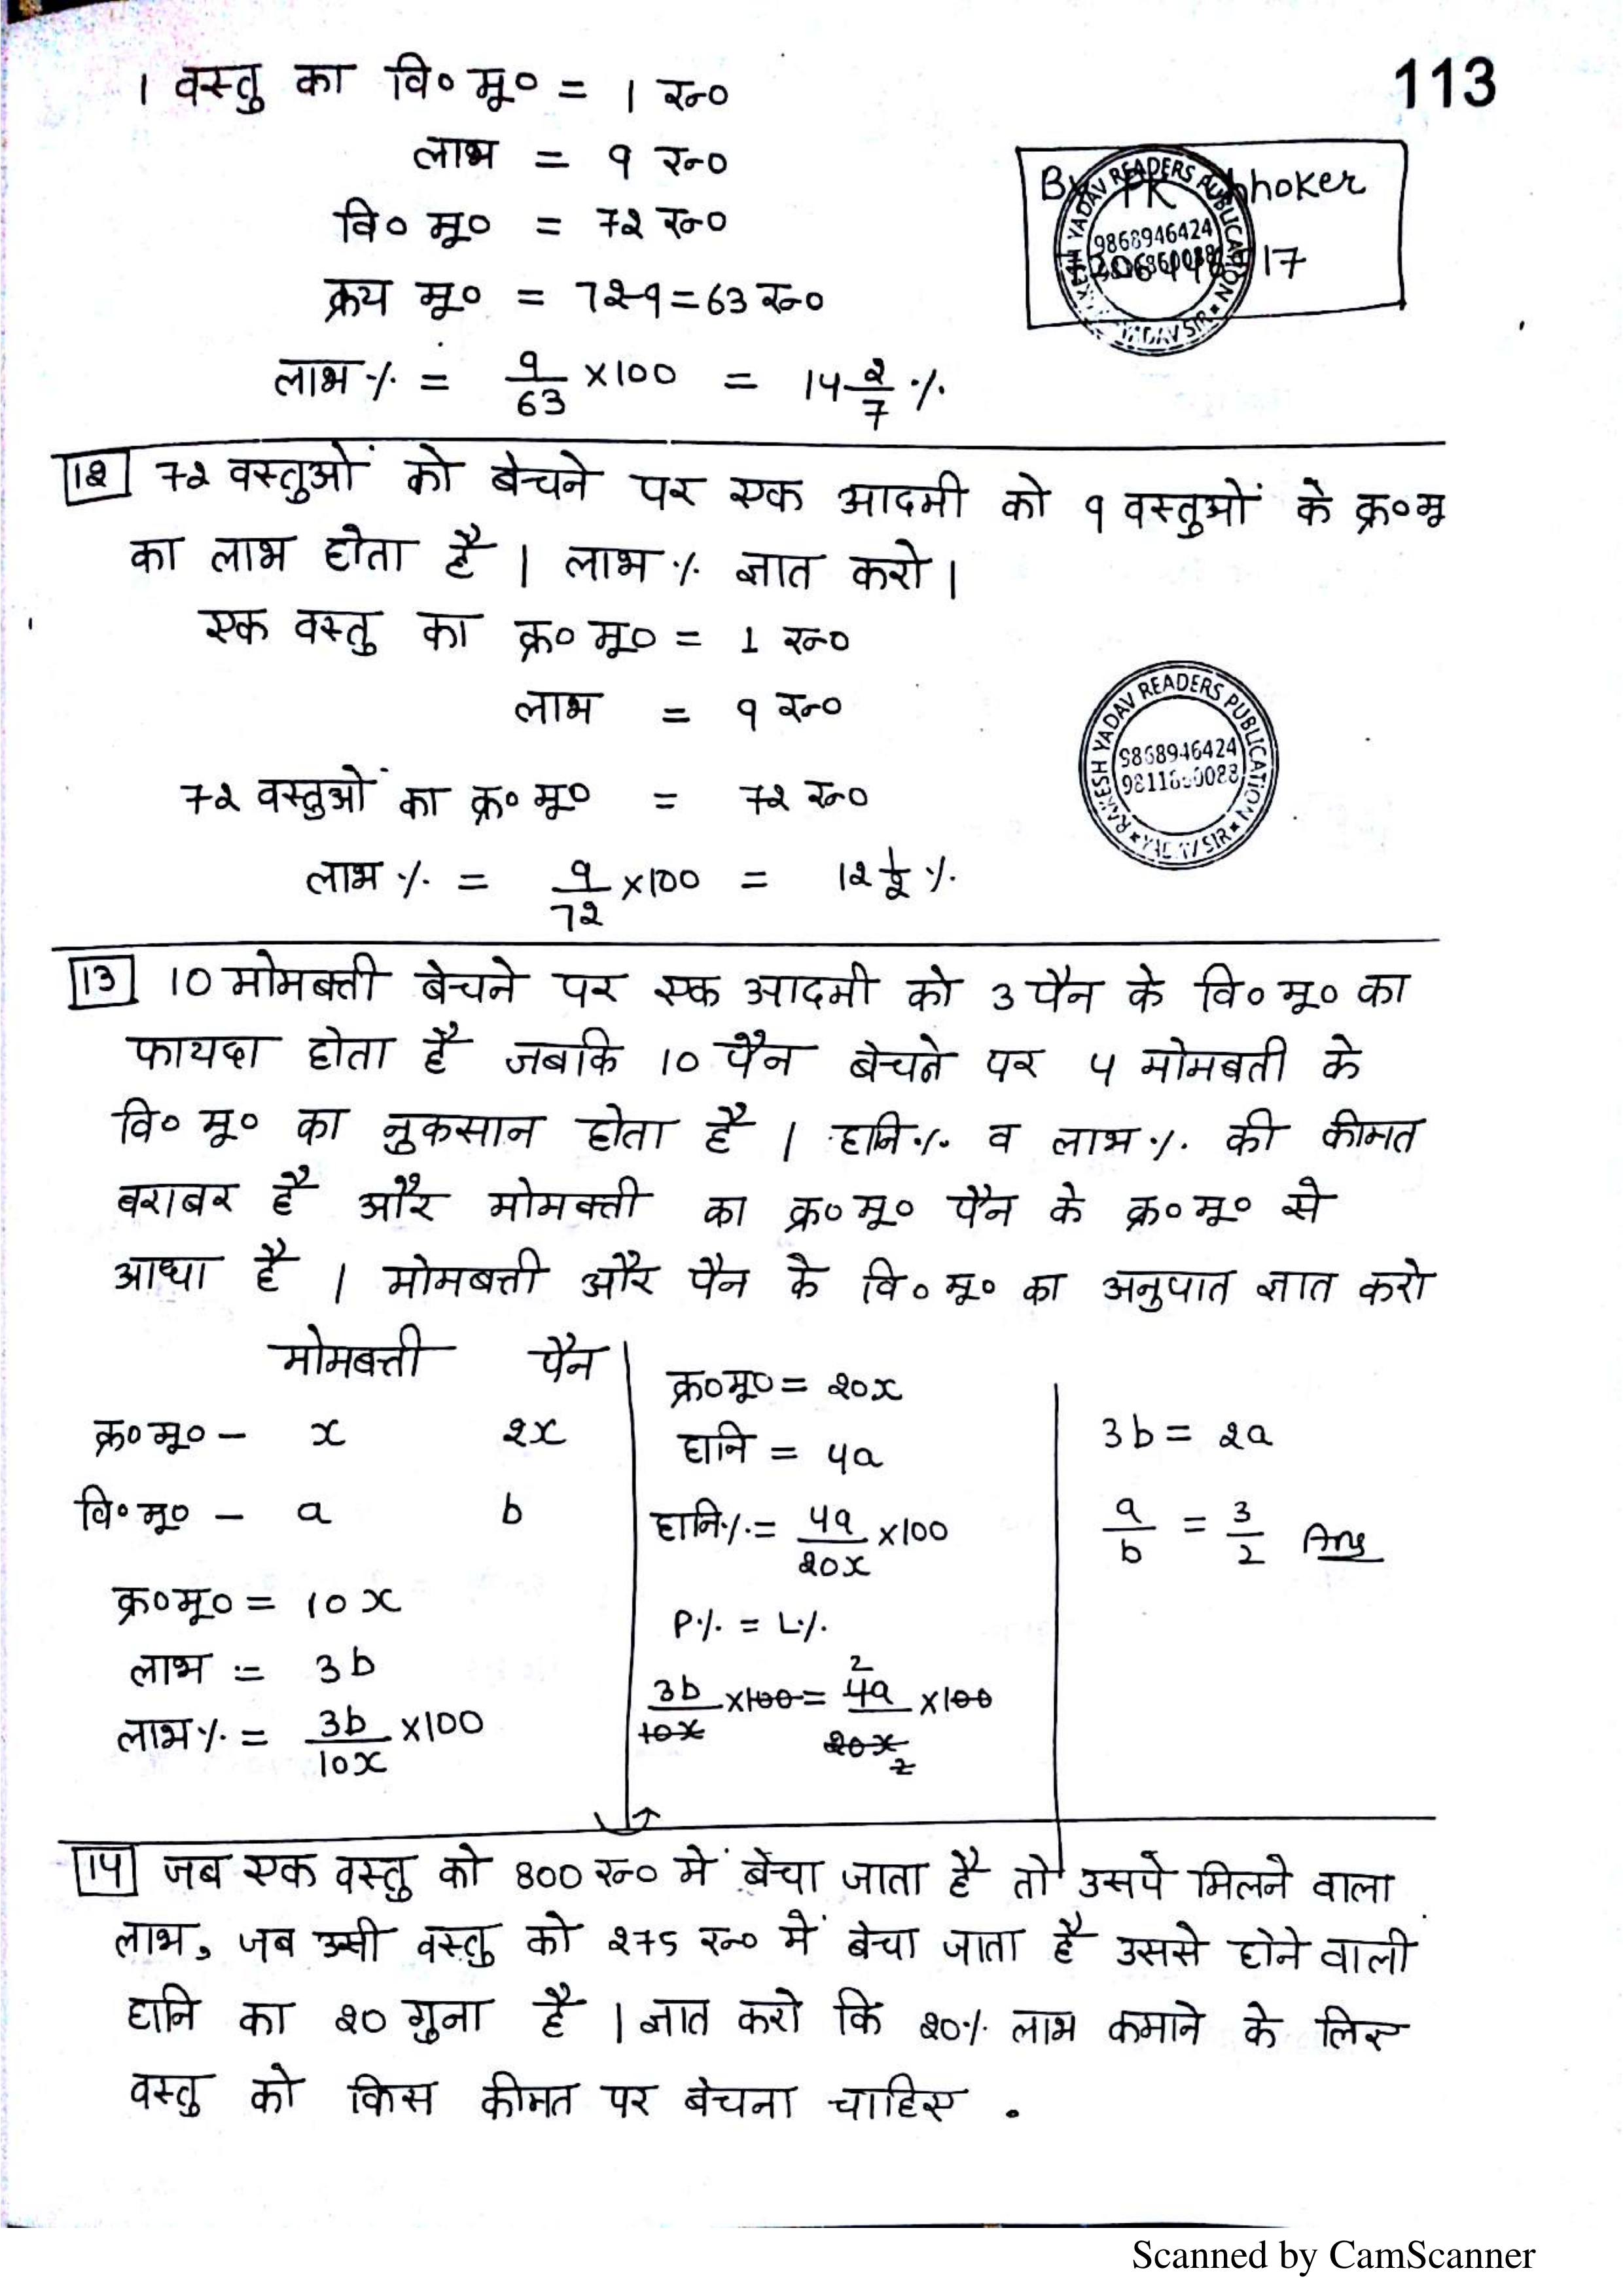 113
1 वस्तु का वि० मू० = 1 रू०
लाभ = 9 रू०
वि० मू० = 72 रू०
क्रय मू० = 72-9 = 63 रू०
लाभ % = 9/63 × 100 = 14 2/7 %
By PK
17
RAKESH YADAV READERS PUBLICATION
9868946424
YADAV SIR
12 72 वस्तुओं को बेचने पर एक आदमी को 9 वस्तुओं के क्र०मू
का लाभ होता है । लाभ % ज्ञात करो ।
एक वस्तु का क्र० मू० = 1 रू०
लाभ = 9 रू०
RAKESH YADAV READERS PUBLICATION
9868946424
YADAV SIR
72 वस्तुओं का क्र० मू० = 72 रू०
लाभ % = 9/72 × 100 = 12 1/2 %
13 10 मोमबत्ती बेचने पर एक आदमी को 3 पैन के वि० मू० का
फायदा होता है जबकि 10 पैन बेचने पर 4 मोमबती के
वि० मू० का नुकसान होता है । हानि % व लाभ %. की कीमत
बराबर है और मोमबत्ती का क्र० मू० पैन के क्र० मू० से
आधा है । मोमबत्ती और पैन के वि० मू० का अनुपात ज्ञात करो
मोमबत्ती पैन
क्र० मू० – x 2x
वि० मू० – a b
क्र० मू० = 10x
लाभ = 3b
लाभ % = 3b/10x × 100
क्र० मू० = 20x
हानि = 4a
हानि % = 4a/20x × 100
P% = L%
3b/10x × 100 = 4a/20x × 100
2
2
3b = 2a
a/b = 3/2 Ans
14 जब एक वस्तु को 800 रू० में बेचा जाता है तो उसपे मिलने वाला
लाभ, जब उसी वस्तु को 275 रू० में बेचा जाता है उससे होने वाली
हानि का 20 गुना है । ज्ञात करो कि 20% लाभ कमाने के लिए
वस्तु को किस कीमत पर बेचना चाहिए .
Scanned by CamScanner